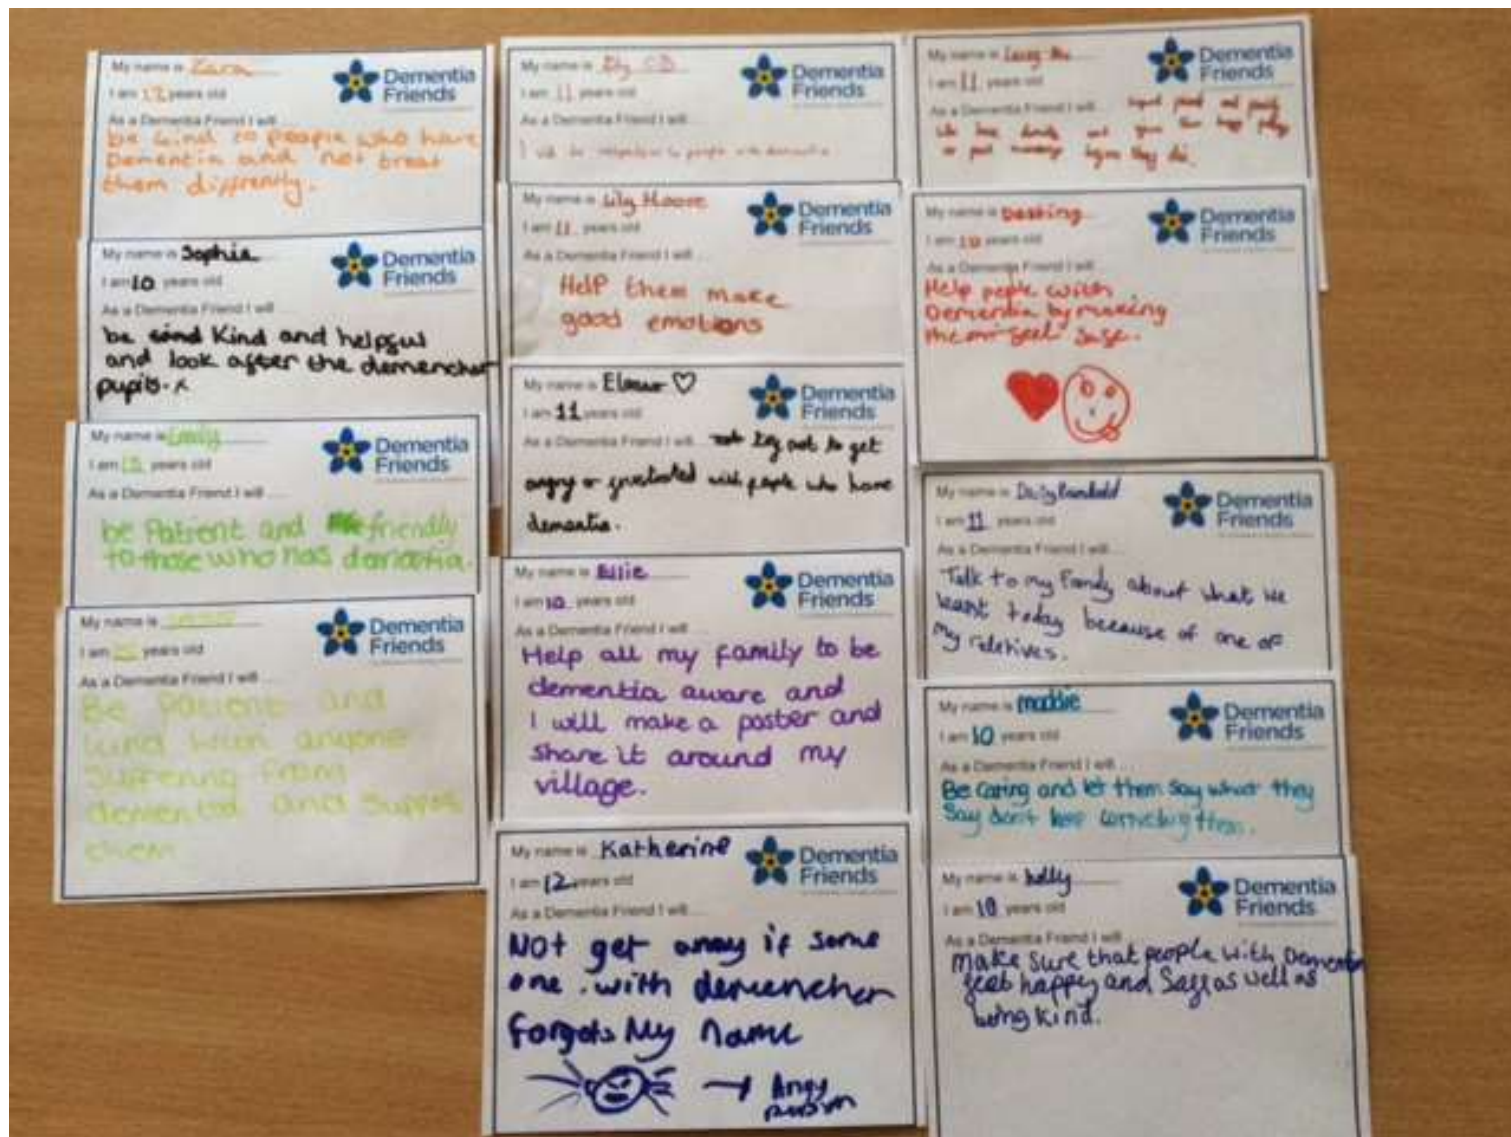 My name is Zara
I am 12 years old
Dementia
Friends
As a Dementia Friend I will ...
be kind to people who have
Dementia and not treat
them diffrently.
My name is Sophia
I am 10 years old
Dementia
Friends
As a Dementia Friend I will ...
be Kind and helpful
and look after the demencher
pupils. x
My name is Emily
I am years old
Dementia
Friends
As a Dementia Friend I will ...
be Patient and friendly
to those who has
My name is
I am years old
Dementia
Friends
As a Dementia Friend I will ...
Be Patient and
kind with anyone
suffering from
dementia and
them
My name is
I am 11 years old
Dementia
Friends
As a Dementia Friend I will ...
I will be to people with dementia
My name is Lily Moore
I am 11 years old
Dementia
Friends
As a Dementia Friend I will ...
Help them make
good emotions
My name is
I am 11 years old
Dementia
Friends
As a Dementia Friend I will ... try not to get
angry or frustrated with people who have
dementia.
My name is Ellie
I am 10 years old
Dementia
Friends
As a Dementia Friend I will ...
Help all my family to be
dementia aware and
I will make a poster and
share it around my
village.
My name is Katherine
I am 12 years old
Dementia
Friends
As a Dementia Friend I will ...
Not get if some
one with demencher
forgets My Name
Angy
My name is
I am 11 years old
Dementia
Friends
As a Dementia Friend I will ...
they
My name is
I am 10 years old
Dementia
Friends
As a Dementia Friend I will ...
Help peple with
Dementia by making
them feel safe.
My name is
I am 11 years old
Dementia
Friends
As a Dementia Friend I will ...
Talk to my family about what we
today because of one of
my reletives.
My name is maddie
I am 10 years old
Dementia
Friends
As a Dementia Friend I will ...
Be caring and let them say what they
say don't keep them.
My name is holly
I am 10 years old
Dementia
Friends
As a Dementia Friend I will ...
make sure that people with Dementia
feel happy and safe as well as
being kind.